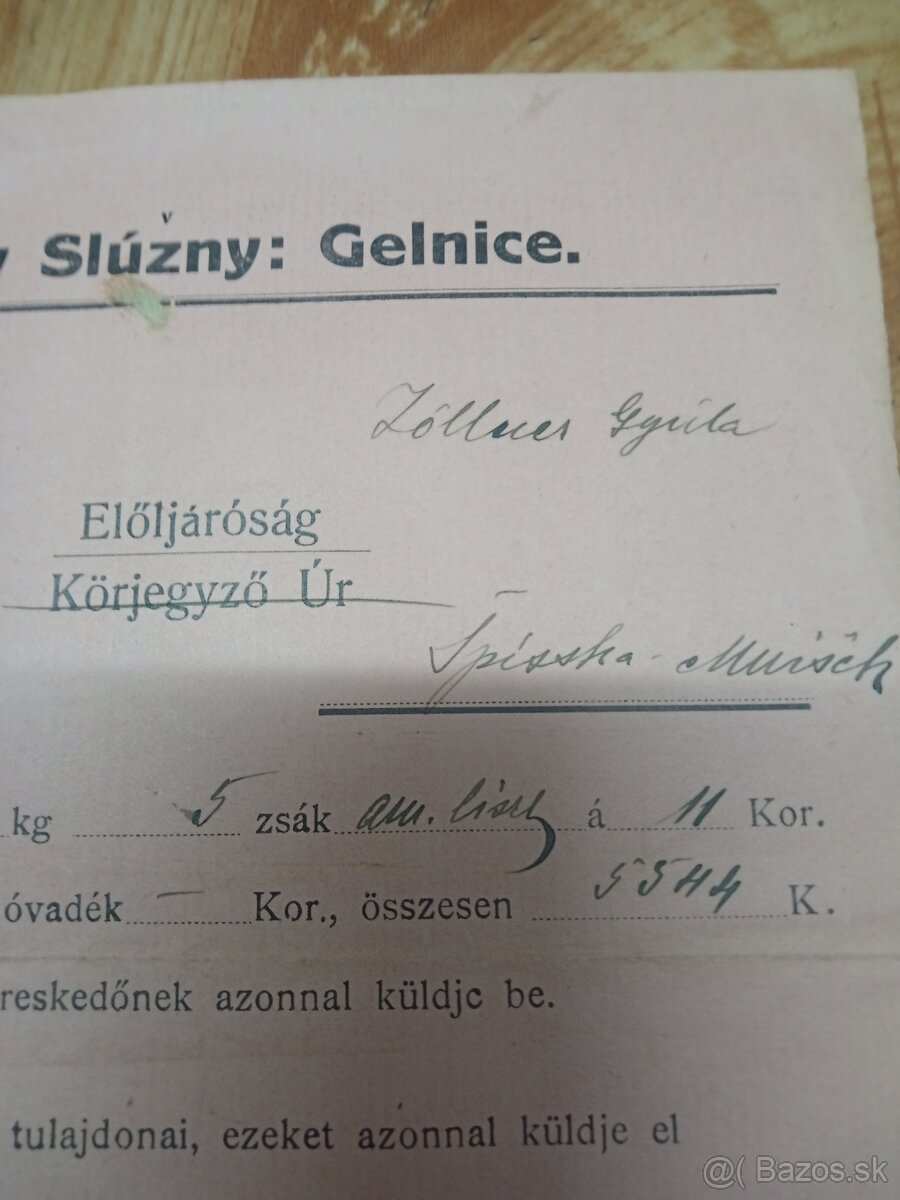 Slúžny: Gelnice.
Zöllner Gyula
Előljáróság
Körjegyző Úr
Spišska
kg 5 zsák am. liszt á 11 Kor.
óvadék — Kor., összesen 5544 K.
reskedőnek azonnal küldje be.
tulajdonai, ezeket azonnal küldje el
@( Bazos.sk